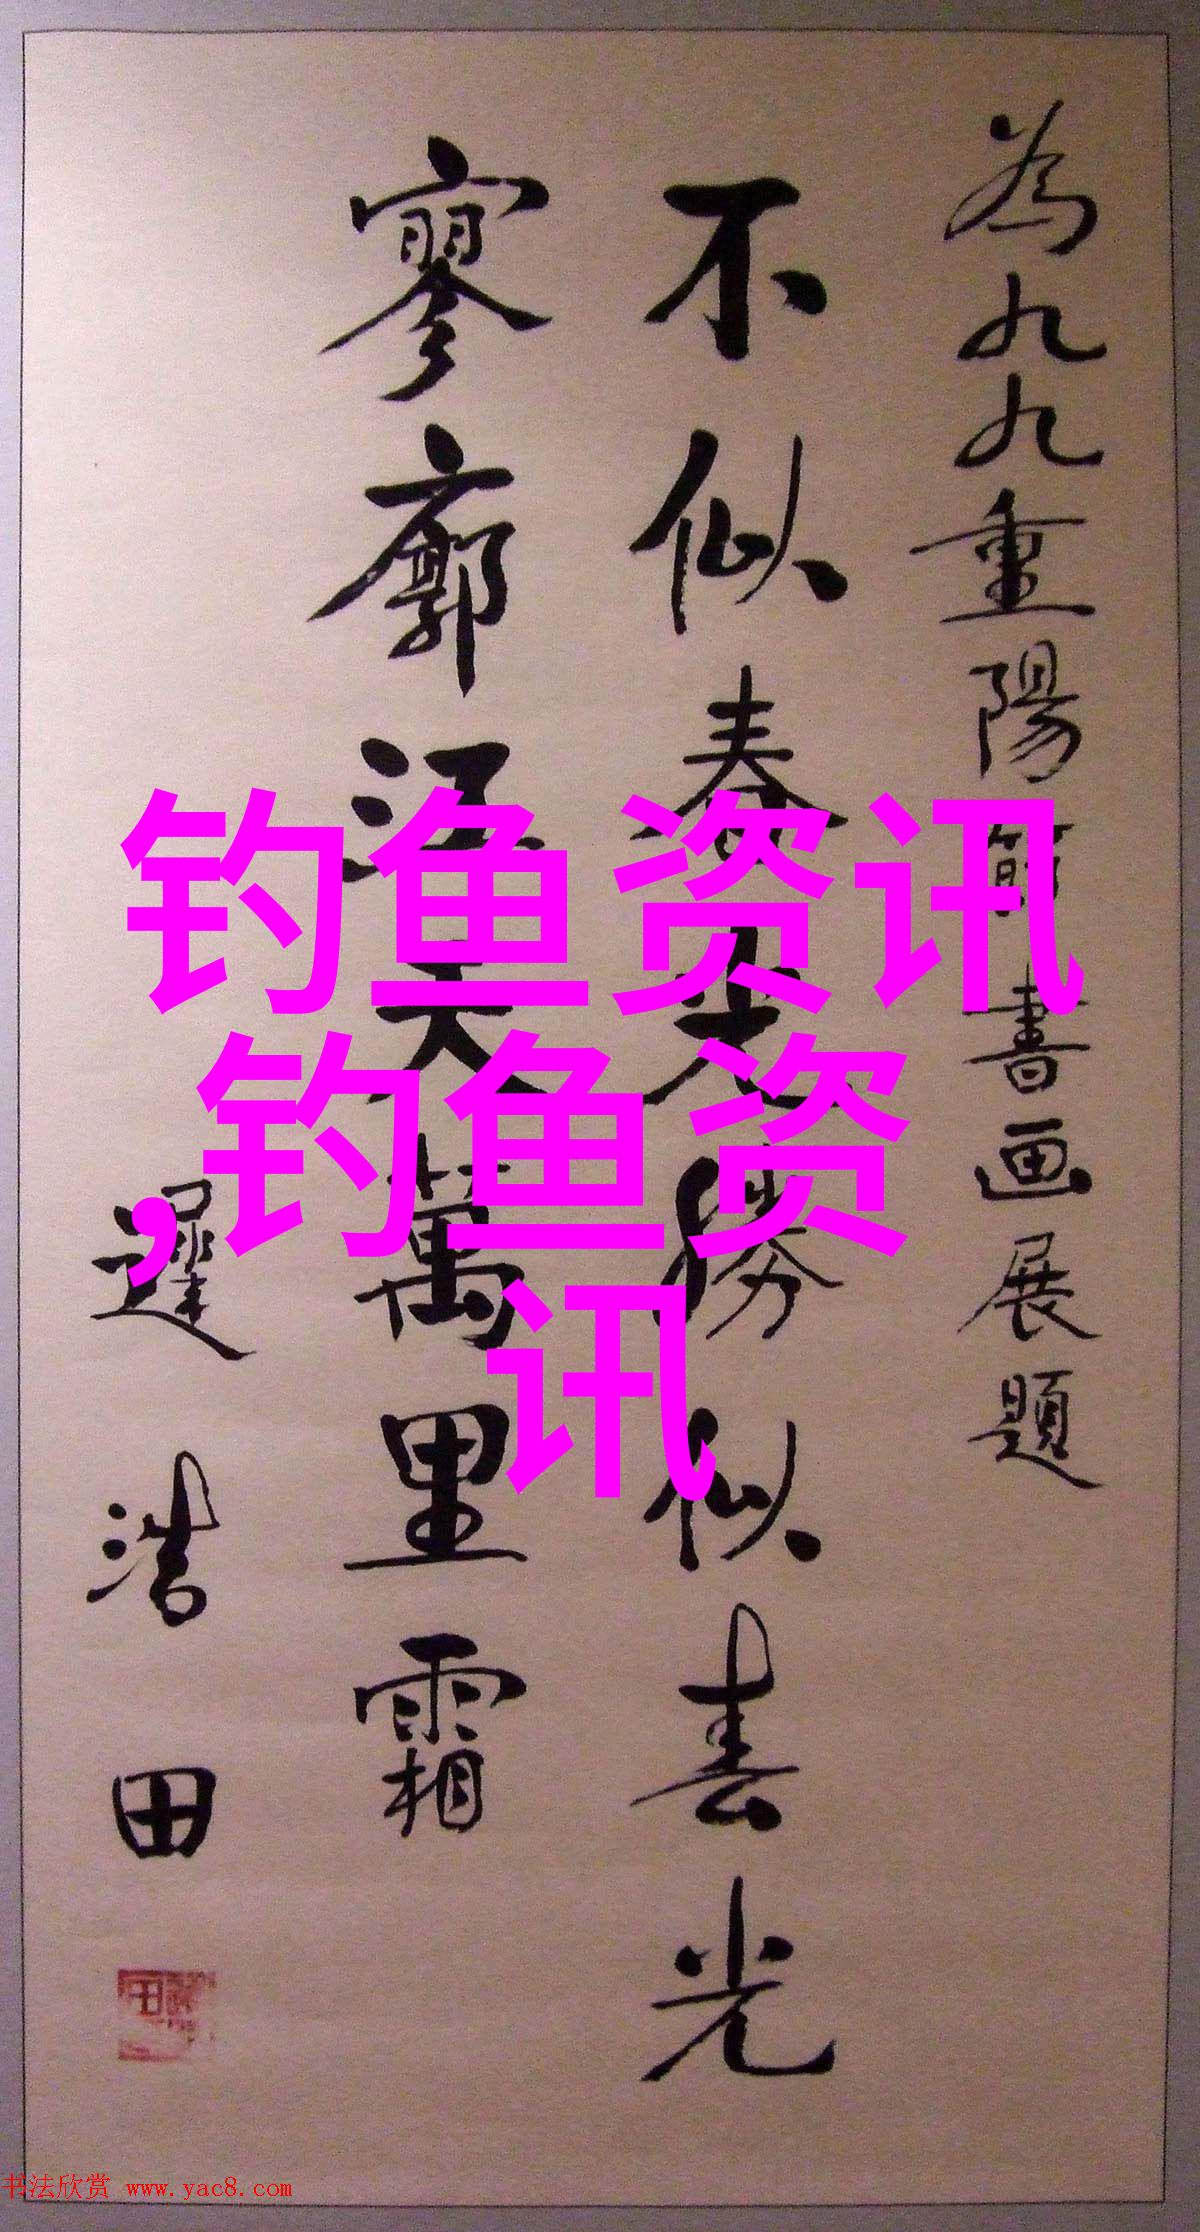 為九九重陽節書画展題
不似春光勝似春光
寥廓江天萬里霜
遲浩田
钓鱼资讯
,钓鱼资
讯
书法欣赏 www.yac8.com